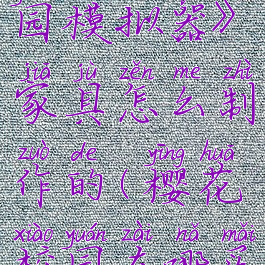 园模拟器》
jiā jù zěn me zhì
家具怎么制
zuò de yīng huā
作的(樱花
xiào yuán zài nǎ mǎi